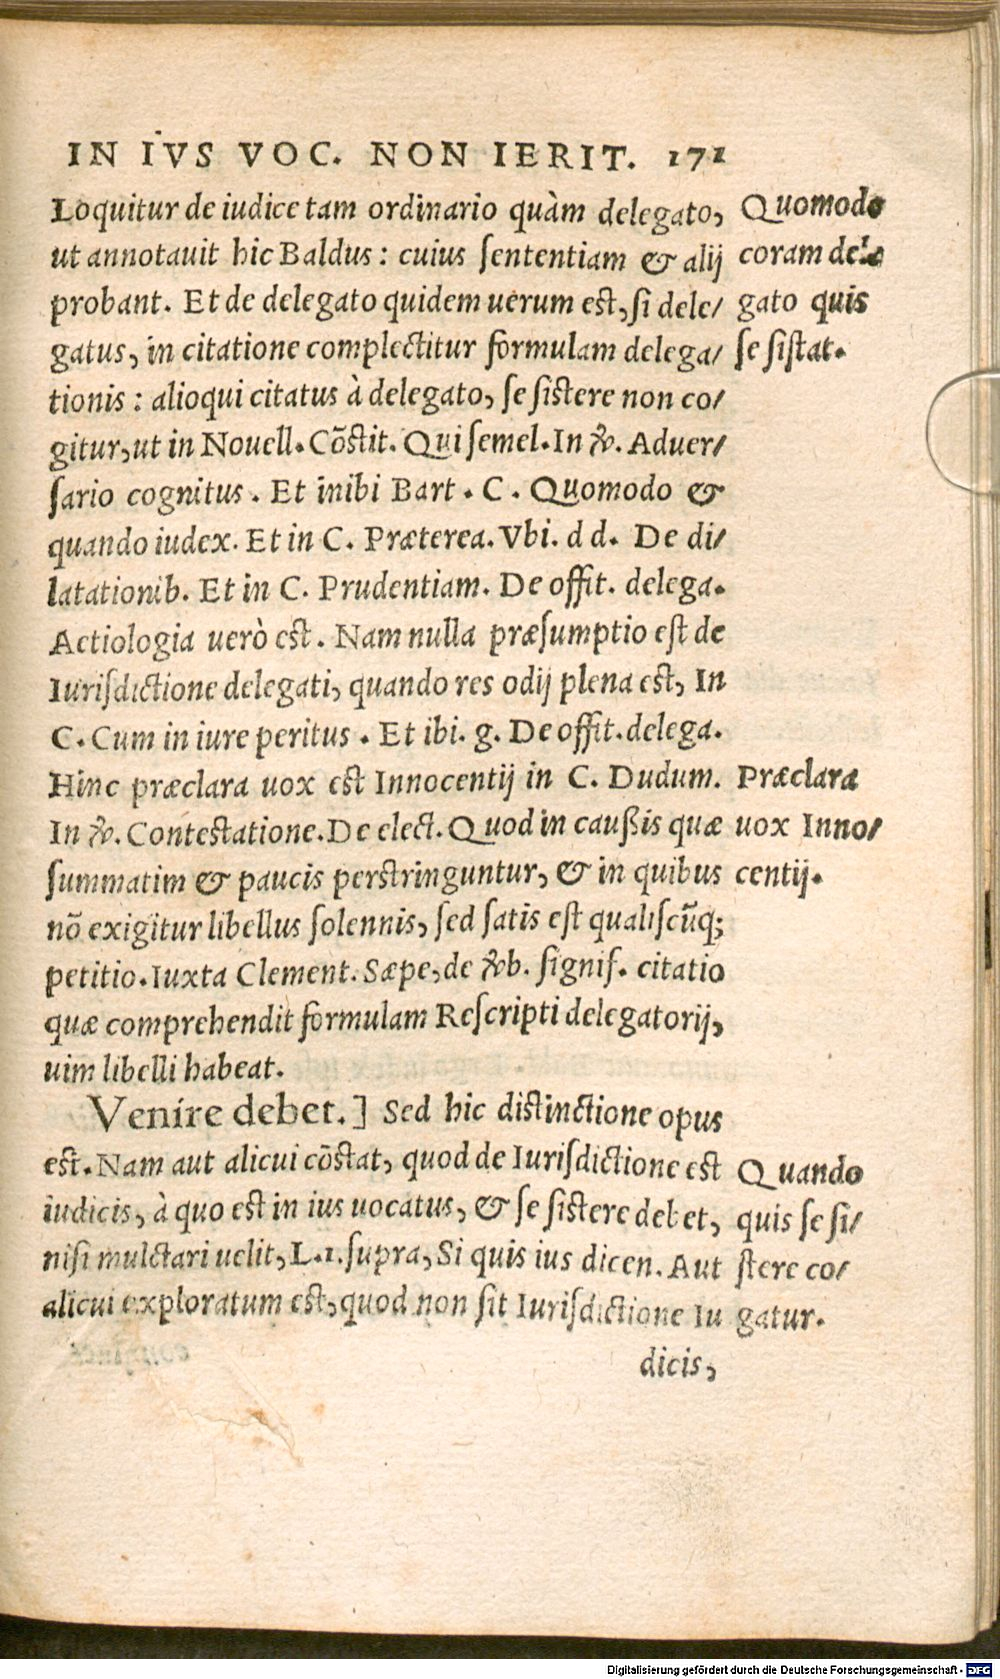 IN IVS VOC. NON IERIT. 171
Loquitur de iudice tam ordinario quàm delegato,
ut annotauit hic Baldus: cuius sententiam & alij
probant. Et de delegato quidem uerum est, si dele/
gatus, in citatione complectitur formulam delega/
tionis: alioqui citatus à delegato, se sistere non co/
gitur, ut in Nouell. Cōstit. Qui semel. In ꝟ. Aduer/
sario cognitus. Et inibi Bart. C. Quomodo &
quando iudex. Et in C. Præterea. Vbi. d d. De di/
latationib. Et in C. Prudentiam. De offit. delega.
Aetiologia uerò est. Nam nulla præsumptio est de
Iurisdictione delegati, quando res odij plena est, In
C. Cum in iure peritus. Et ibi. g. De offit. delega.
Hinc præclara uox est Innocentij in C. Dudum.
In ꝟ. Contestatione. De elect. Quod in caußis quæ
summatim & paucis perstringuntur, & in quibus
nō exigitur libellus solennis, sed satis est qualiscūq;
petitio. Iuxta Clement. Sæpe, de ꝟb. signif. citatio
quæ comprehendit formulam Rescripti delegatorij,
uim libelli habeat.
Veníre debet.] Sed hic distinctione opus
est. Nam aut alicui cōstat, quod de Iurisdictione est
iudicis, à quo est in ius uocatus, & se sistere debet,
nisi mulctari uelit, L.1. supra, Si quis ius dicen. Aut
alicui exploratum est, quod non sit Iurisdictione Iu
dicis,
Quomodo
coram dele
gato quis
se sistat.
Præclara
uox Inno/
centij.
Quando
quis se si/
stere co/
gatur.
Digitalisierung gefördert durch die Deutsche Forschungsgemeinschaft - DFG